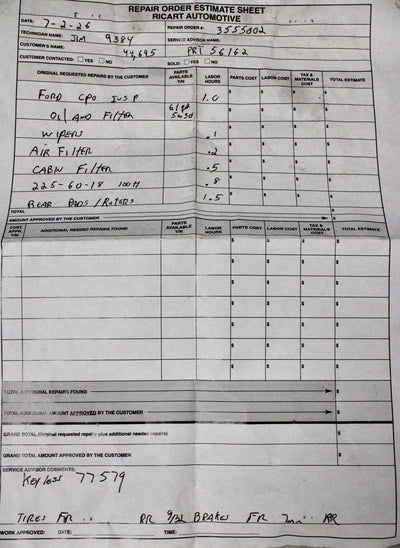 REPAIR ORDER ESTIMATE SHEET
RICART AUTOMOTIVE
DATE: 7-2-26 REPAIR ORDER #: 3555002
TECHNICIAN NAME: JIM 9384 SERVICE ADVISOR NAME:
CUSTOMER'S NAME: 44,695 PRT 56162
CUSTOMER CONTACTED: YES NO SOLD: YES NO
ORIGINAL REQUESTED REPAIRS BY THE CUSTOMER PARTS AVAILABLE Y/N LABOR HOURS PARTS COST LABOR COST TAX & MATERIALS COST TOTAL ESTIMATE
FORD CPO INSP 1.0 $ $ $ $
OIL AND FILTER 5w30 $ $ $ $
WIPERS .1 $ $ $ $
AIR FILTER .2 $ $ $ $
CABIN FILTER .5 $ $ $ $
225-60-18 .8 $ $ $ $
REAR PADS/ROTORS 1.5 $ $ $ $
TOTAL
AMOUNT APPROVED BY THE CUSTOMER $
CUST. APPR. Y/N ADDITIONAL NEEDED REPAIRS FOUND PARTS AVAILABLE Y/N LABOR HOURS PARTS COST LABOR COST TAX & MATERIALS COST TOTAL ESTIMATE
$ $ $ $
$ $ $ $
$ $ $ $
$ $ $ $
$ $ $ $
$ $ $ $
$ $ $ $
TOTAL ADDITIONAL REPAIRS FOUND $
TOTAL ADDITIONAL AMOUNT APPROVED BY THE CUSTOMER $
GRAND TOTAL (Original requested repairs plus additional needed repairs) $
GRAND TOTAL AMOUNT APPROVED BY THE CUSTOMER $
SERVICE ADVISOR COMMENTS:
Keyless 77579
TIRES FR RR 9/32 BRAKES FR RR
WORK APPROVED: DATE: TIME: